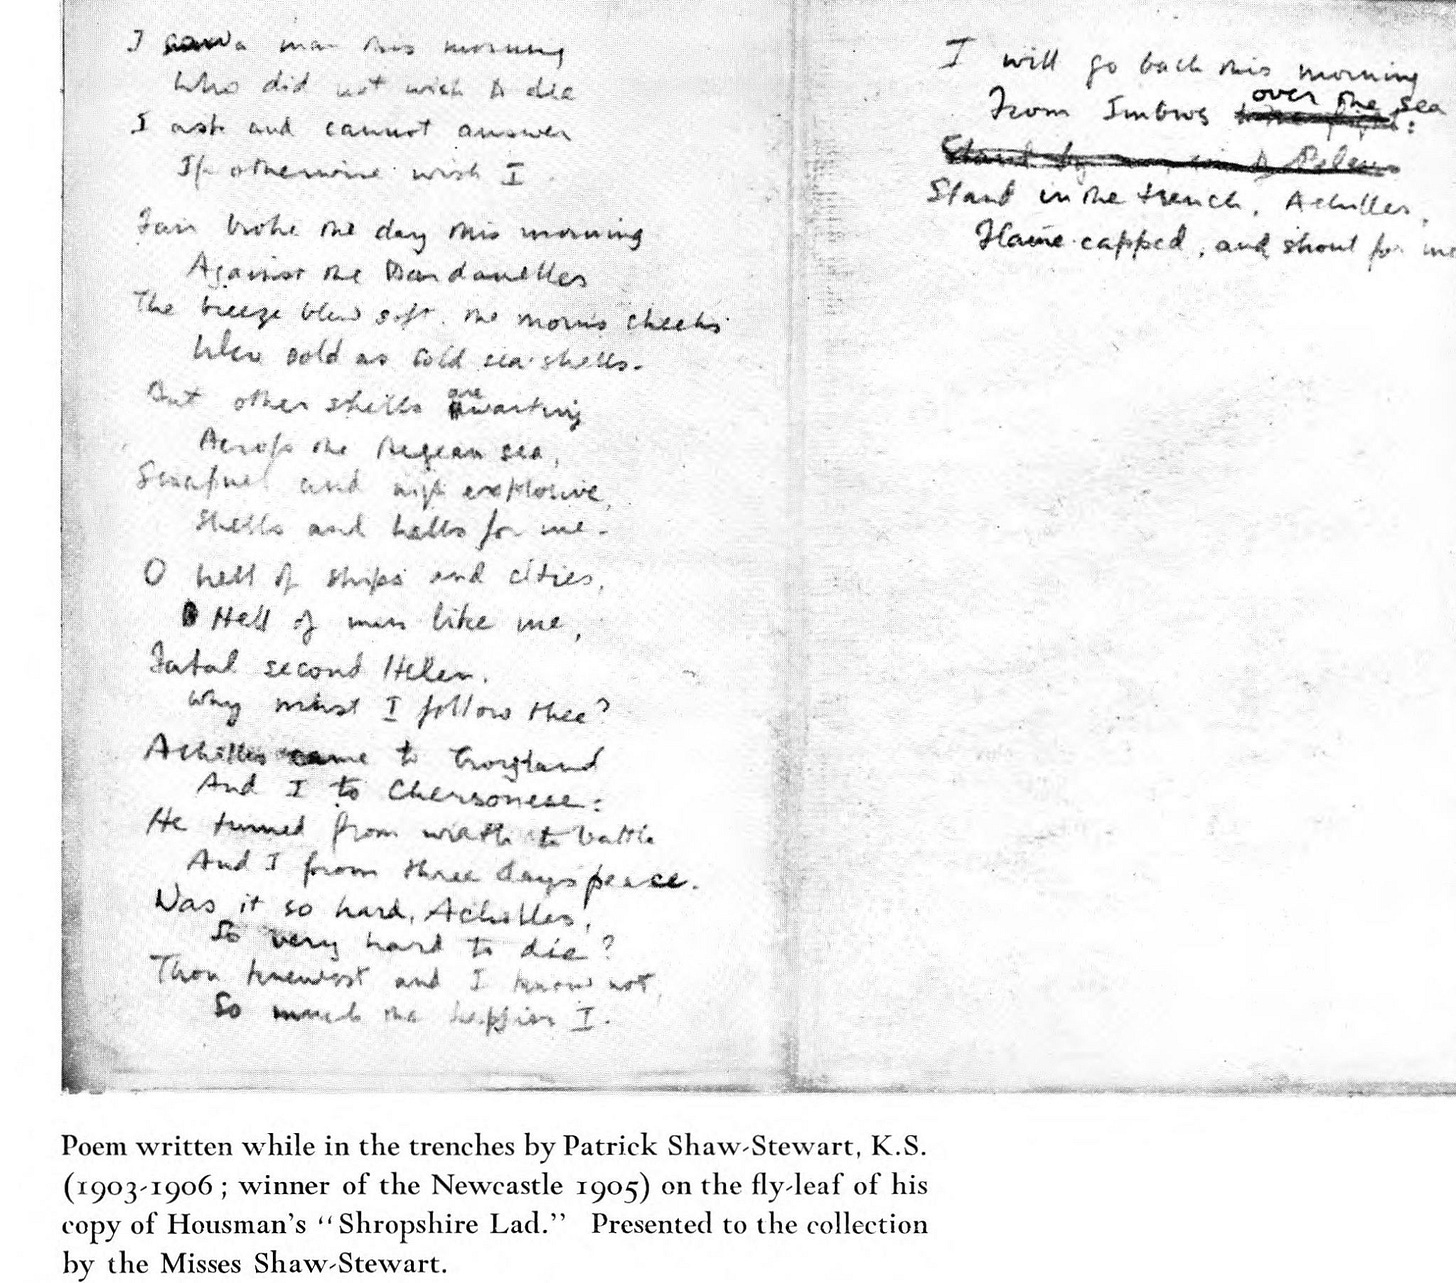 I saw a man this morning
Who did not wish to die
I ask and cannot answer
If otherwise wish I.
Fair broke the day this morning
Against the Dardanelles
The breeze blew soft, the morn's cheeks
Were cold as cold sea-shells.
But other shells are waiting
Across the Aegean sea,
Shrapnel and high explosive,
Shells and hells for me.
O hell of ships and cities,
Hell of men like me,
Fatal second Helen,
Why must I follow thee?
Achilles came to Troyland
And I to Chersonese:
He turned from wrath to battle
And I from three days peace.
Was it so hard, Achilles,
So very hard to die?
Thou knewest and I know not,
So much the happier I.
I will go back this morning
From Imbros over the sea:
Stand in the trench, Achilles,
Flame-capped, and shout for me
Poem written while in the trenches by Patrick Shaw-Stewart, K.S.
(1903-1906; winner of the Newcastle 1905) on the fly-leaf of his
copy of Housman's “Shropshire Lad.” Presented to the collection
by the Misses Shaw-Stewart.